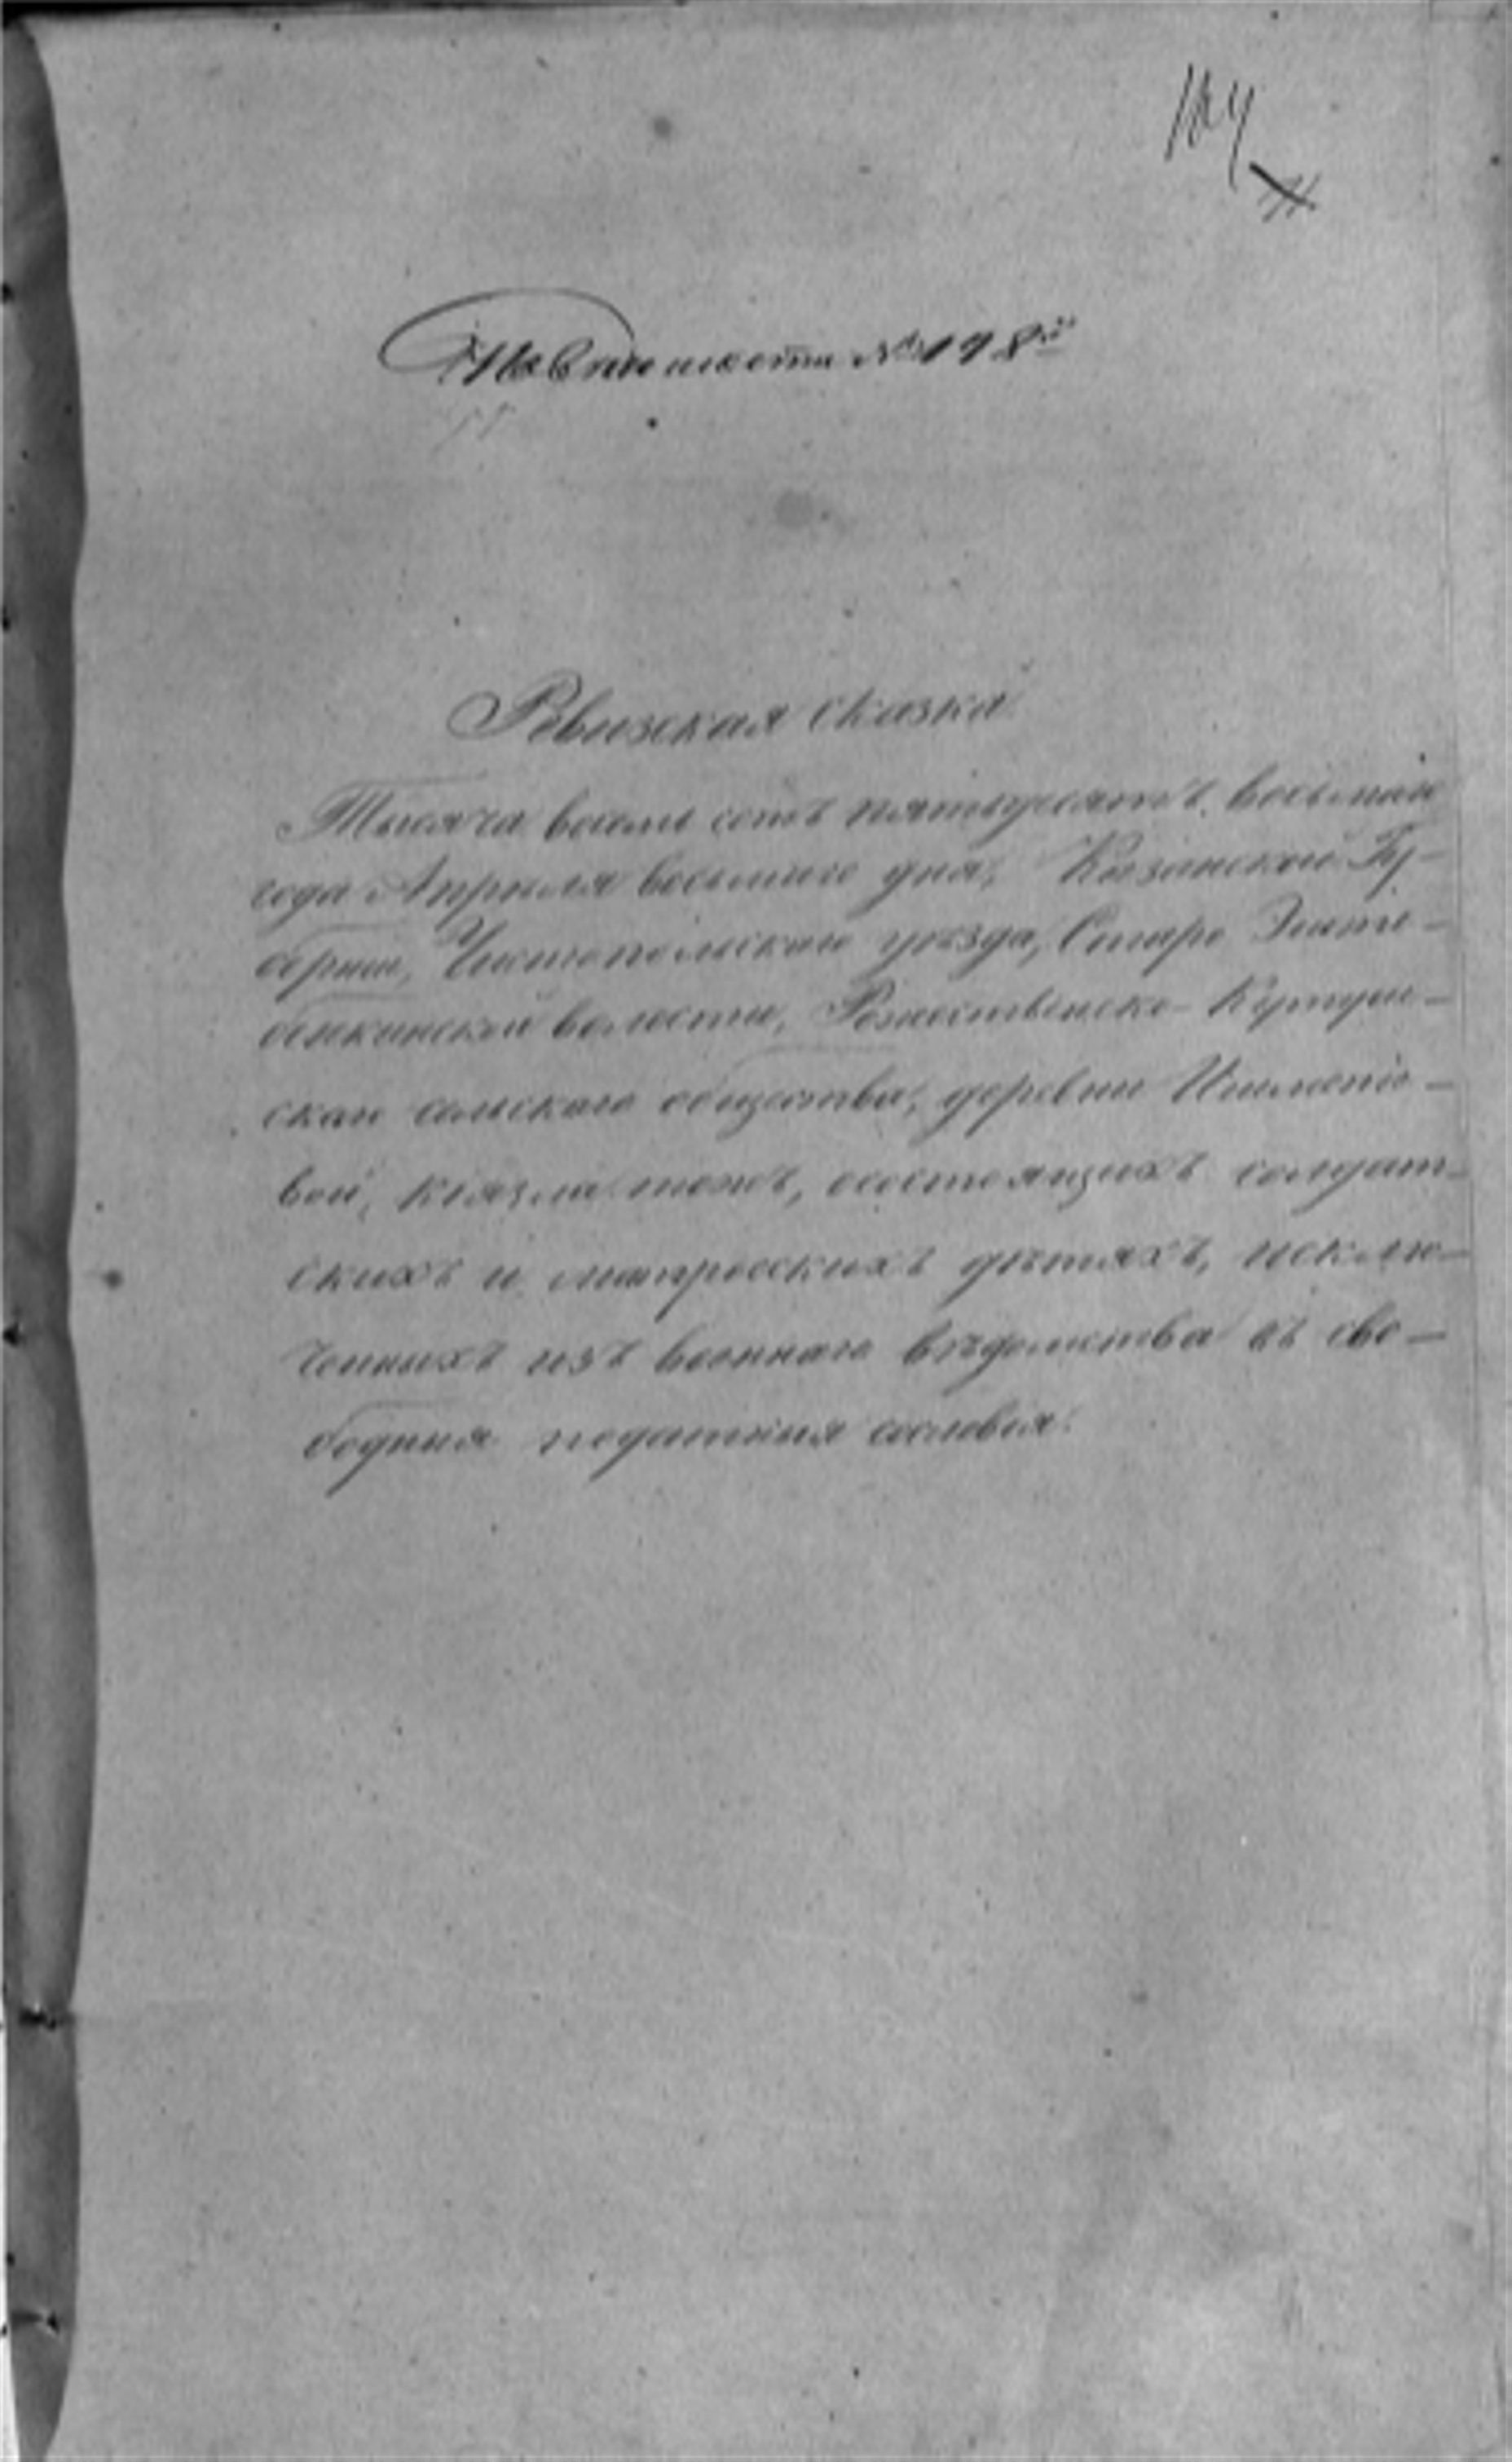 № 198й
Ревизская сказка
Тысяча восемь сотъ пятьдесятъ восьмаго
года Апреля восьмаго дня, Казанской Гу-
берніи, Чистопольскаго уѣзда, Старо
волости, Рождественско-
скаго сельскаго общества, деревни
вой, тожъ, о состоящихъ солдат-
скихъ и матросскихъ дѣтяхъ, исклю-
ченныхъ изъ военнаго вѣдомства въ сво-
бодныя податныя сословія.